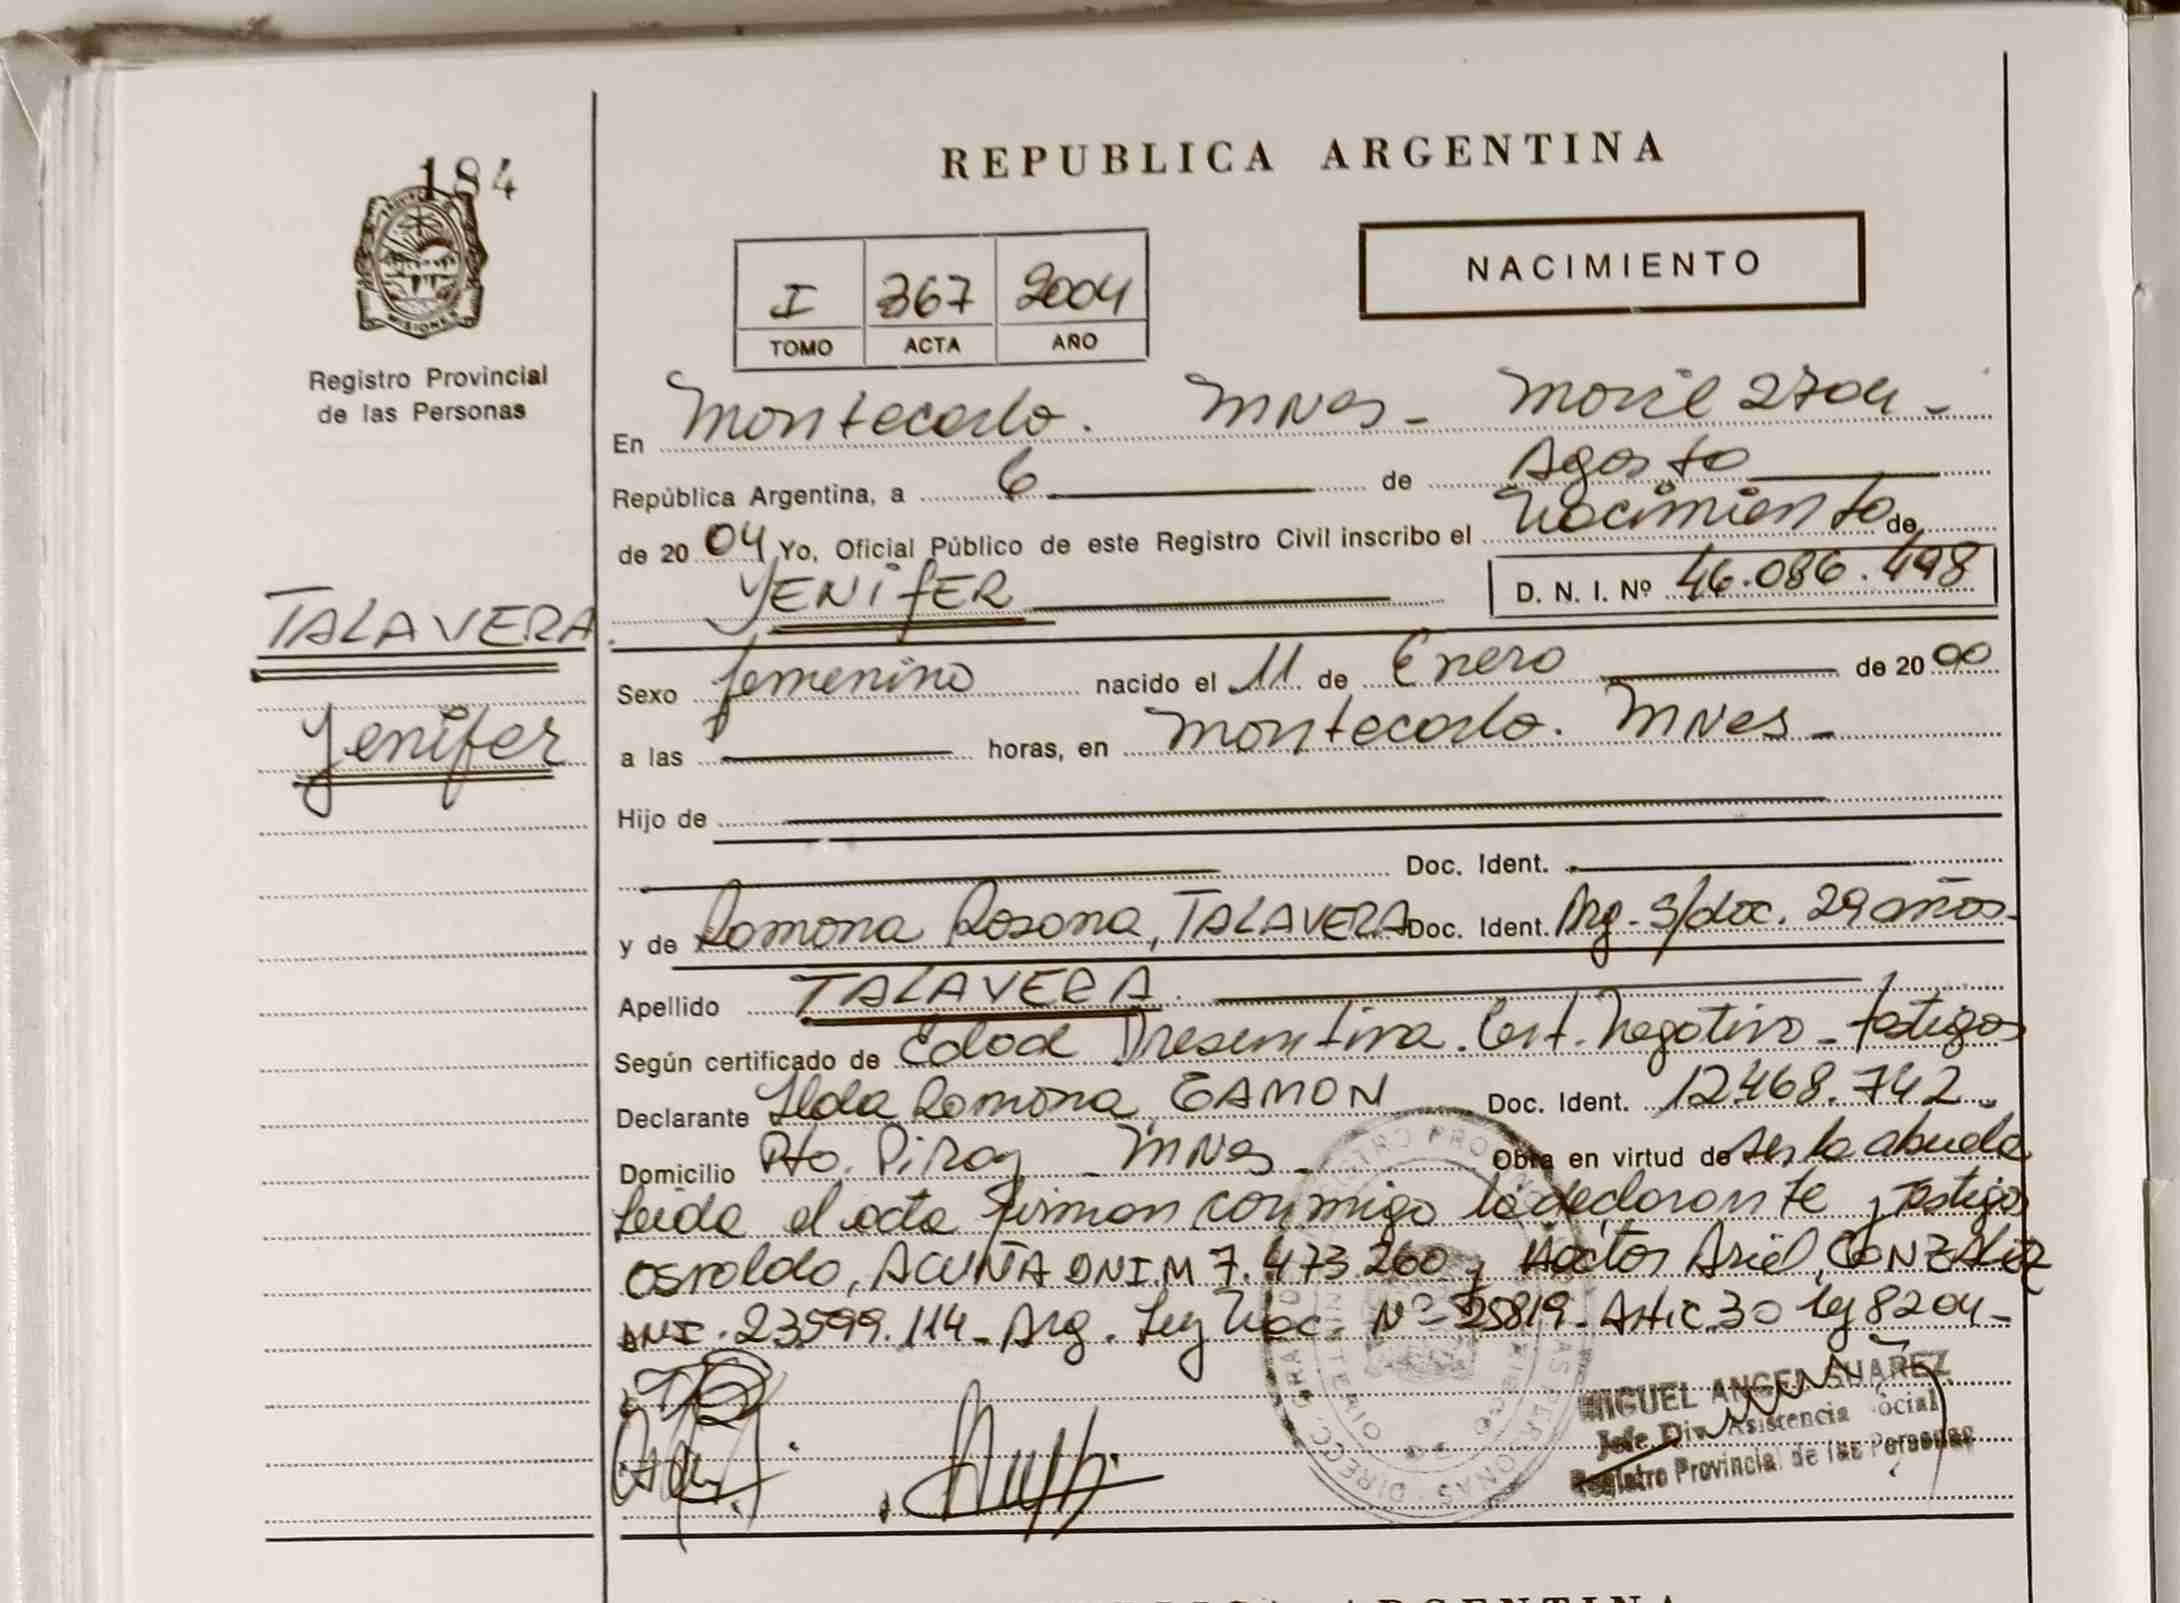 184
REPUBLICA ARGENTINA
NACIMIENTO
I 367 2004
TOMO ACTA AÑO
MISIONES
Registro Provincial
de las Personas
En Montecarlo. Mnes - Movil 2704 -
República Argentina, a 6 de Agosto
de 20 04 Yo, Oficial Público de este Registro Civil inscribo el Nacimiento de
YENIFER D. N. I. Nº 46.086.498
TALAVERA
Yenifer
Sexo femenino nacido el 11 de Enero de 20 00
a las horas, en Montecarlo. Mnes -
Hijo de
Doc. Ident.
y de Ramona Rosana, TALAVERA Doc. Ident. Arg - S/doc. 29 años -
Apellido TALAVERA
Según certificado de Edad Presentiva. Cert. Negativo - testigos
Declarante Ilda Ramona GAMON Doc. Ident. 12.468.742 -
Domicilio Pto. Piray - Mnes - Obra en virtud de ser la abuela
Leida el acta firman conmigo la declarante y testigos
Osvaldo, ACUÑA DNI.M 7.473.260 y Hector Ariel, GONZALEZ
DNI. 23.599.114 - Arg. Ley Nac. Nº 25819 - Artic. 30 ley 8204 -
MIGUEL ANGEL SUAREZ
Jefe Div. Asistencia Social
Registro Provincial de las Personas
REPUBLICA ARGENTINA